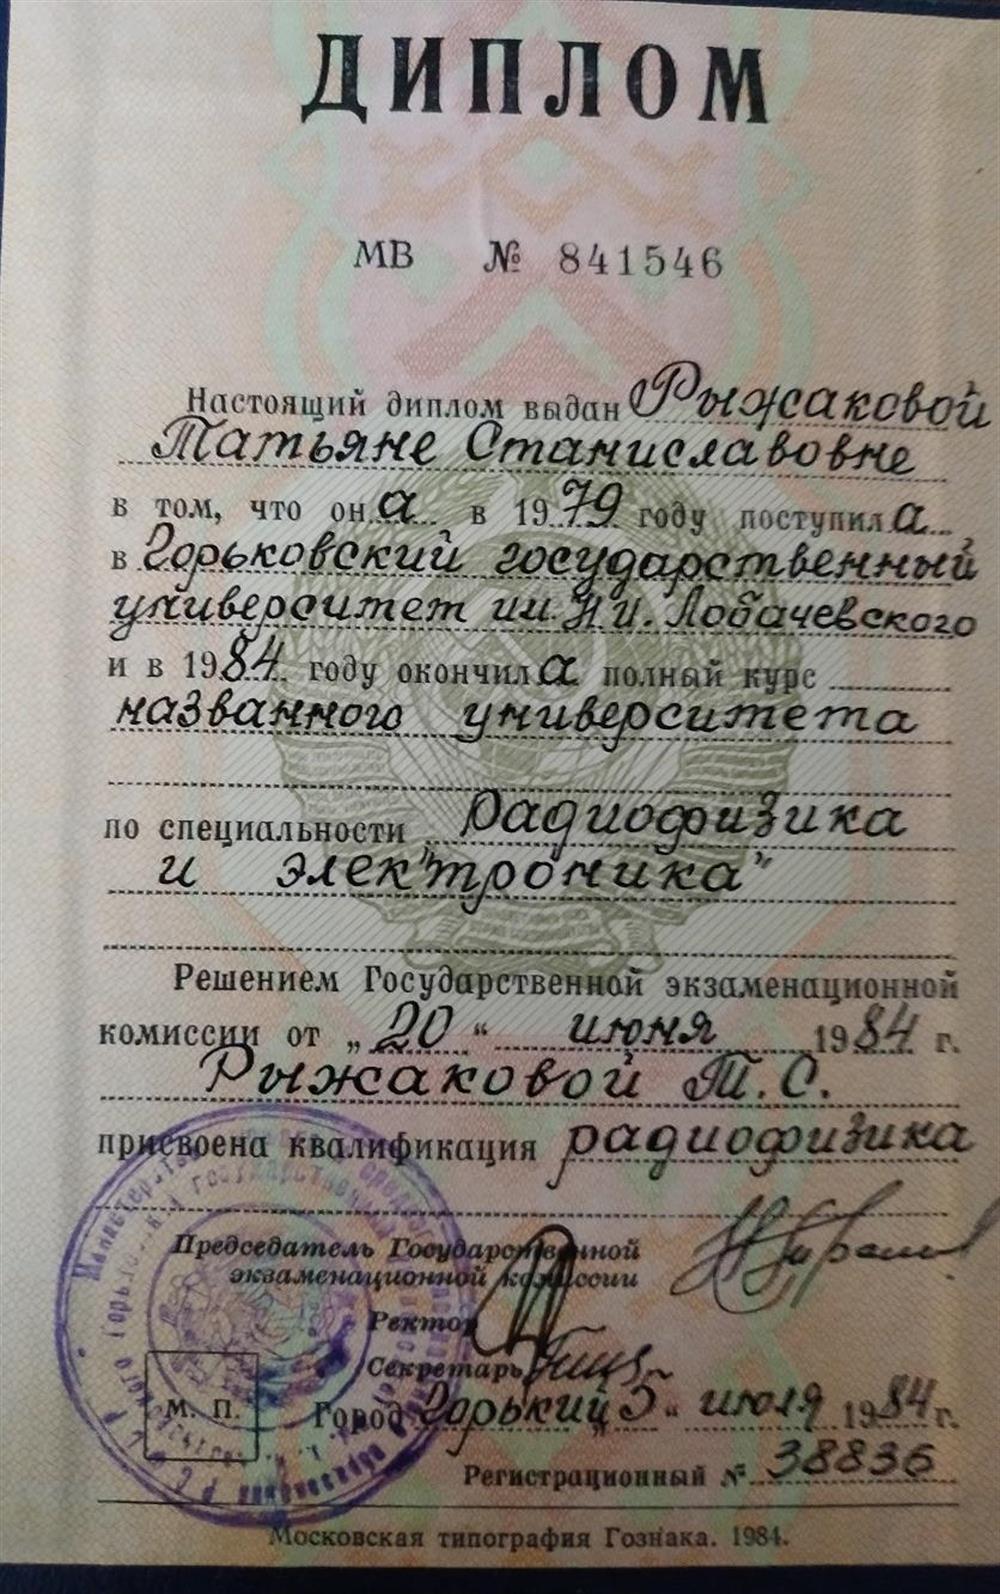 ДИПЛОМ
МВ № 841546
Настоящий диплом выдан Рыжаковой
Татьяне Станиславовне
в том, что она в 1979 году поступила
в Горьковский государственный
университет им. Н.И. Лобачевского
и в 1984 году окончила полный курс
названного университета
по специальности „радиофизика
и электроника"
Решением Государственной экзаменационной
комиссии от „20“ июня 1984 г.
Рыжаковой Т.С.
присвоена квалификация радиофизика
Председатель Государственной
экзаменационной комиссии
Ректор
Секретарь
М. П.
Город Горький „5“ июля 1984 г.
Регистрационный № 38836
Московская типография Гознака. 1984.